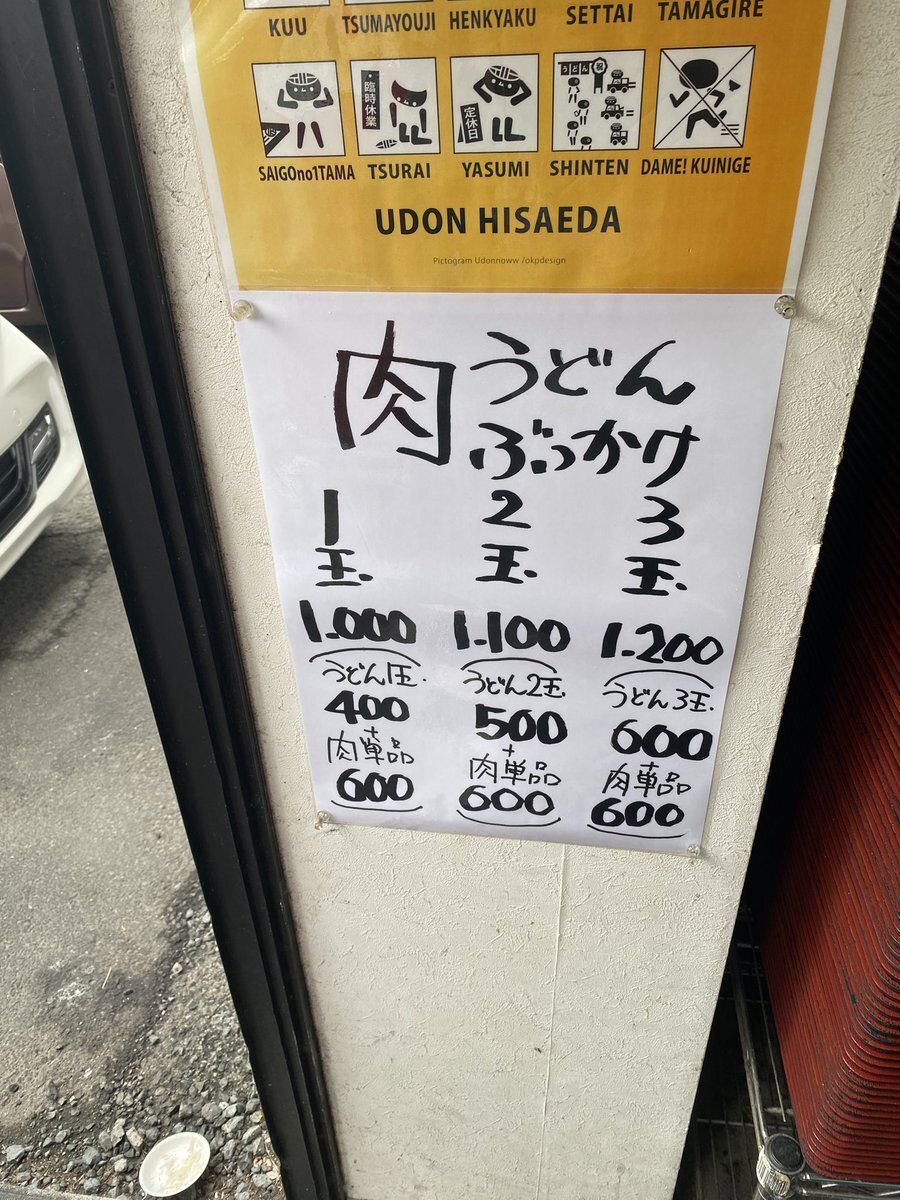 KUU TSUMAYOUJI HENKYAKU SETTAI TAMAGIRE
臨時休業 定休日 うどん 祝
SAIGOno1TAMA TSURAI YASUMI SHINTEN DAME! KUINIGE
UDON HISAEDA
Pictogram Udonnoww /okpdesign
肉 うどん
ぶっかけ
1玉. 2玉. 3玉.
1.000 1.100 1.200
うどん1玉. うどん2玉. うどん3玉.
400 500 600
+ + +
肉単品 肉単品 肉単品
600 600 600